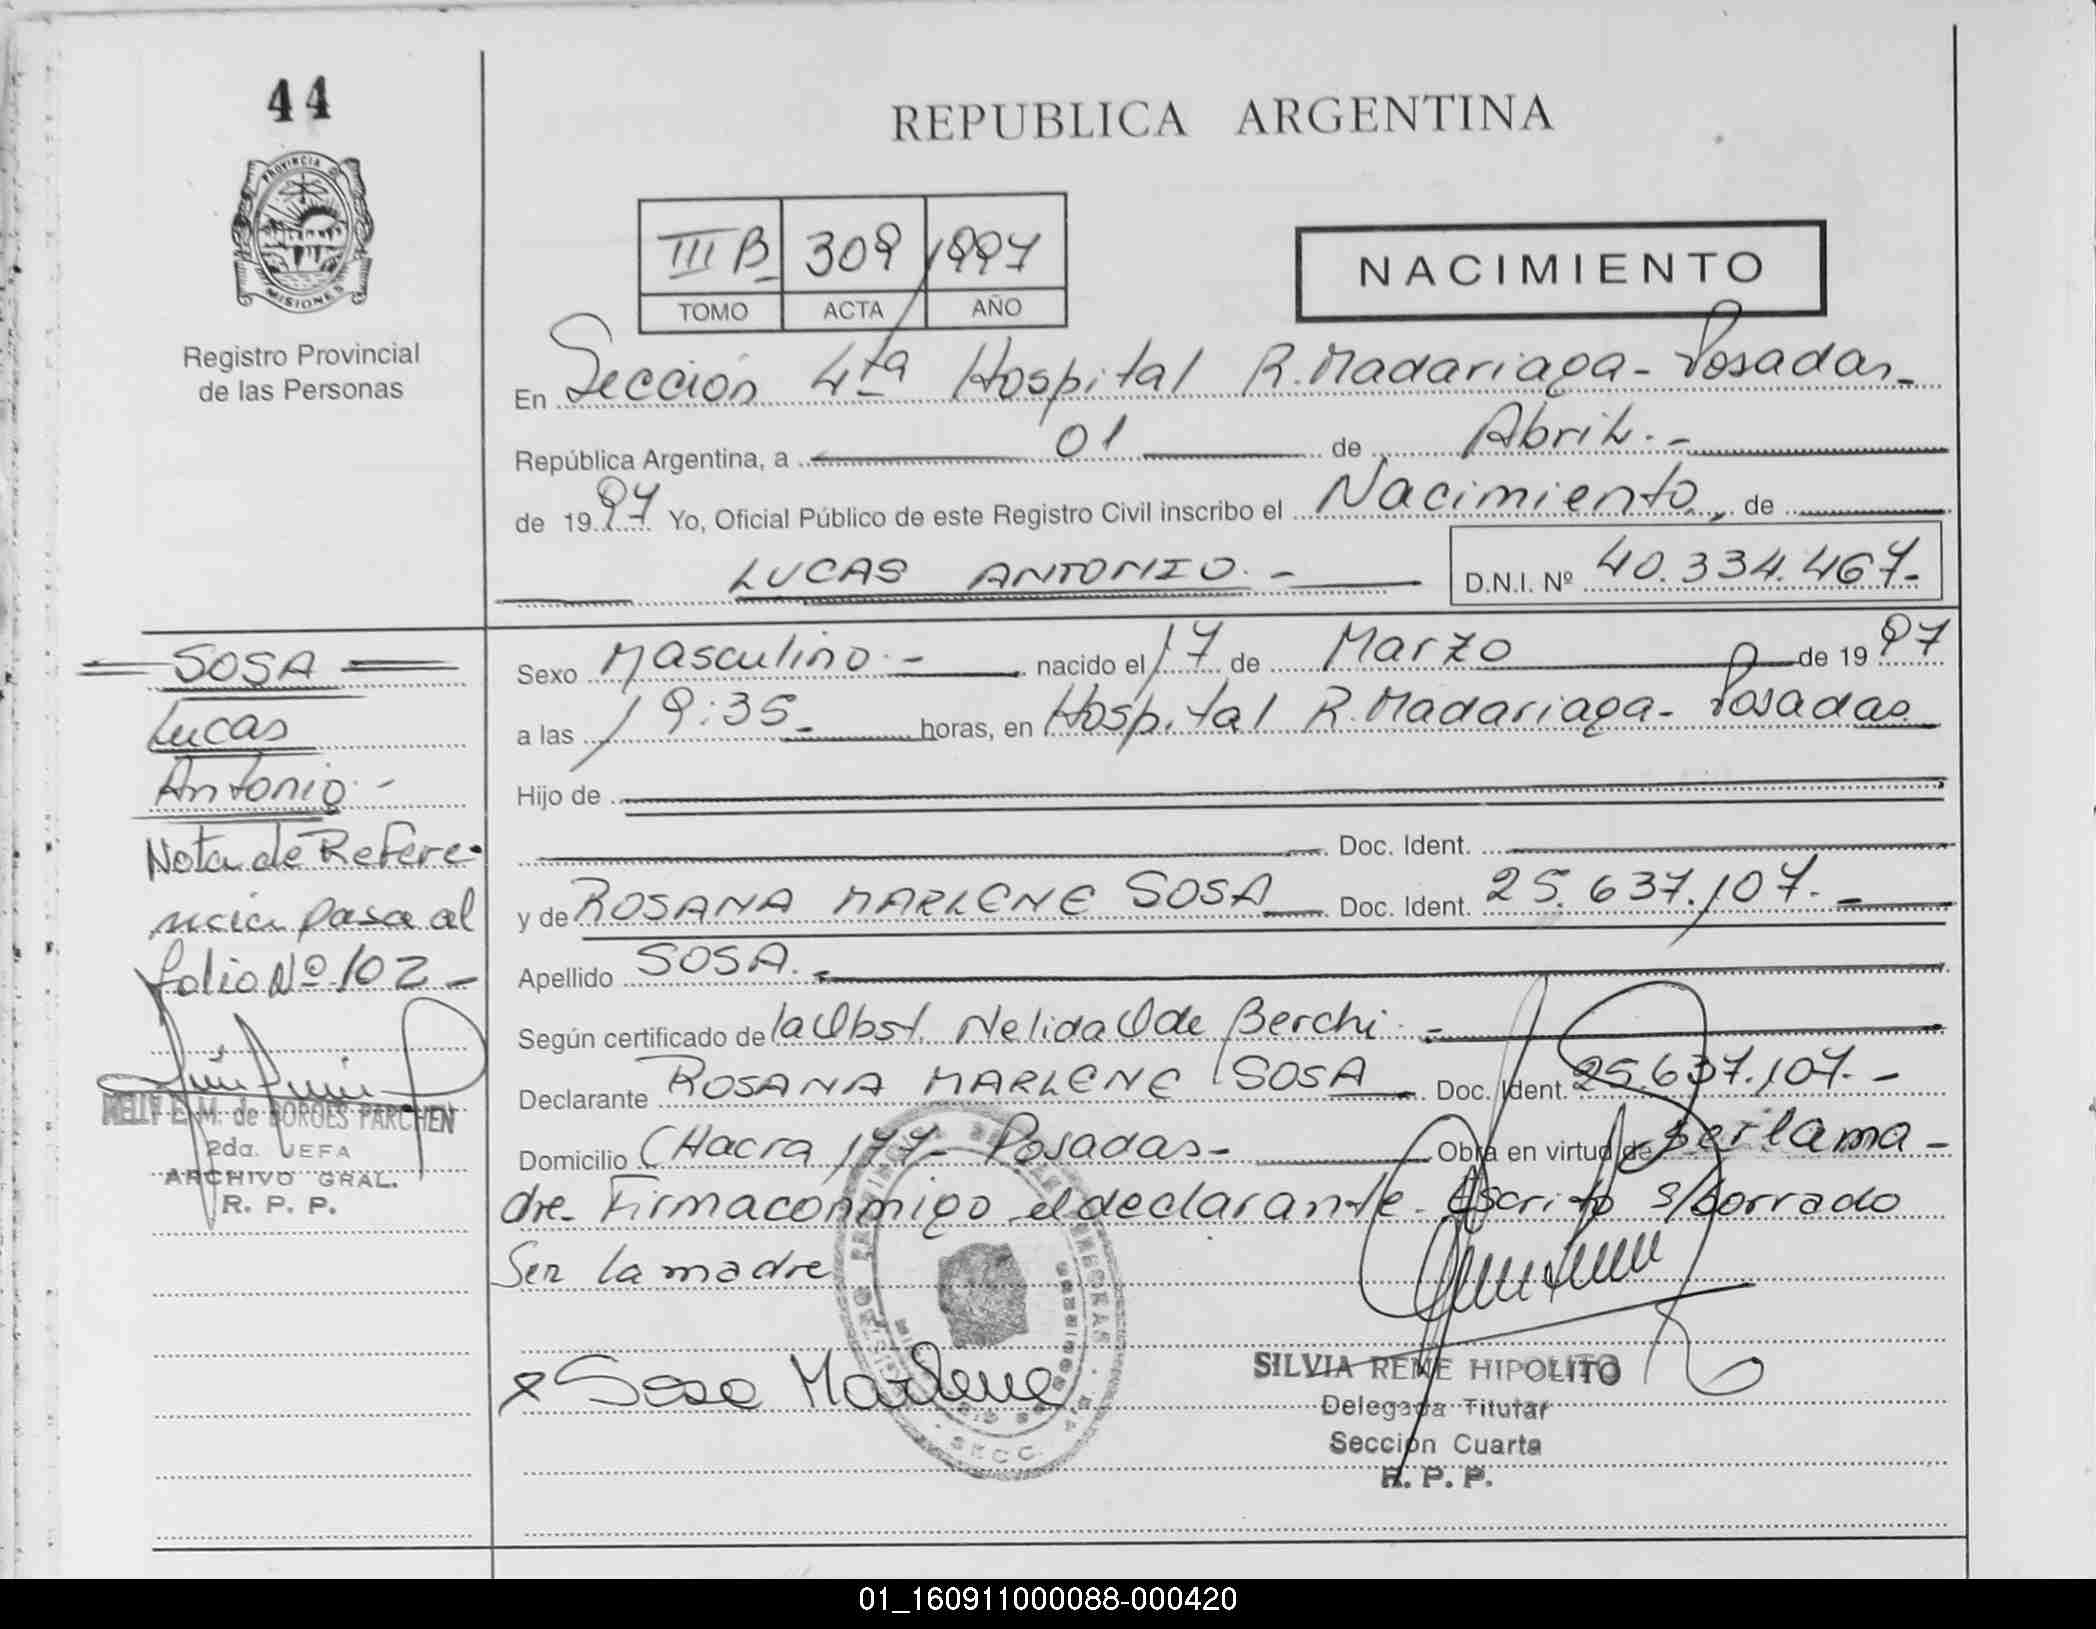 44
PROVINCIA
MISIONES
Registro Provincial
de las Personas
REPUBLICA ARGENTINA
III B 309 1997
TOMO ACTA AÑO
NACIMIENTO
En Sección 4ta Hospital R. Madariaga - Posadas -
República Argentina, a 01 de Abril. -
de 1997 Yo, Oficial Público de este Registro Civil inscribo el Nacimiento, de
LUCAS ANTONIO. - D.N.I. Nº 40.334.467-
SOSA
Lucas
Antonio -
Nota de Refere-
ncia pasa al
folio Nº 102 -
NELLY E. M. de BORGES PARCHEN
2da. JEFA
ARCHIVO GRAL.
R. P. P.
Sexo Masculino. - nacido el 17 de Marzo de 1997
a las 19:35 - horas, en Hospital R. Madariaga - Posadas
Hijo de
Doc. Ident.
y de ROSANA MARLENE SOSA Doc. Ident. 25.637.107. -
Apellido SOSA. -
Según certificado de la Obst. Nelida O de Berchi. -
Declarante ROSANA MARLENE SOSA Doc. Ident. 25.637.107. -
Domicilio CHacra 177 - Posadas - Obra en virtud de ser la ma -
dre - Firma conmigo el declarante - Escrito s/borrado
Ser la madre
x Sosa Marlene
SILVIA RENE HIPOLITO
Delegada Titular
Sección Cuarta
R. P. P.
01_160911000088-000420